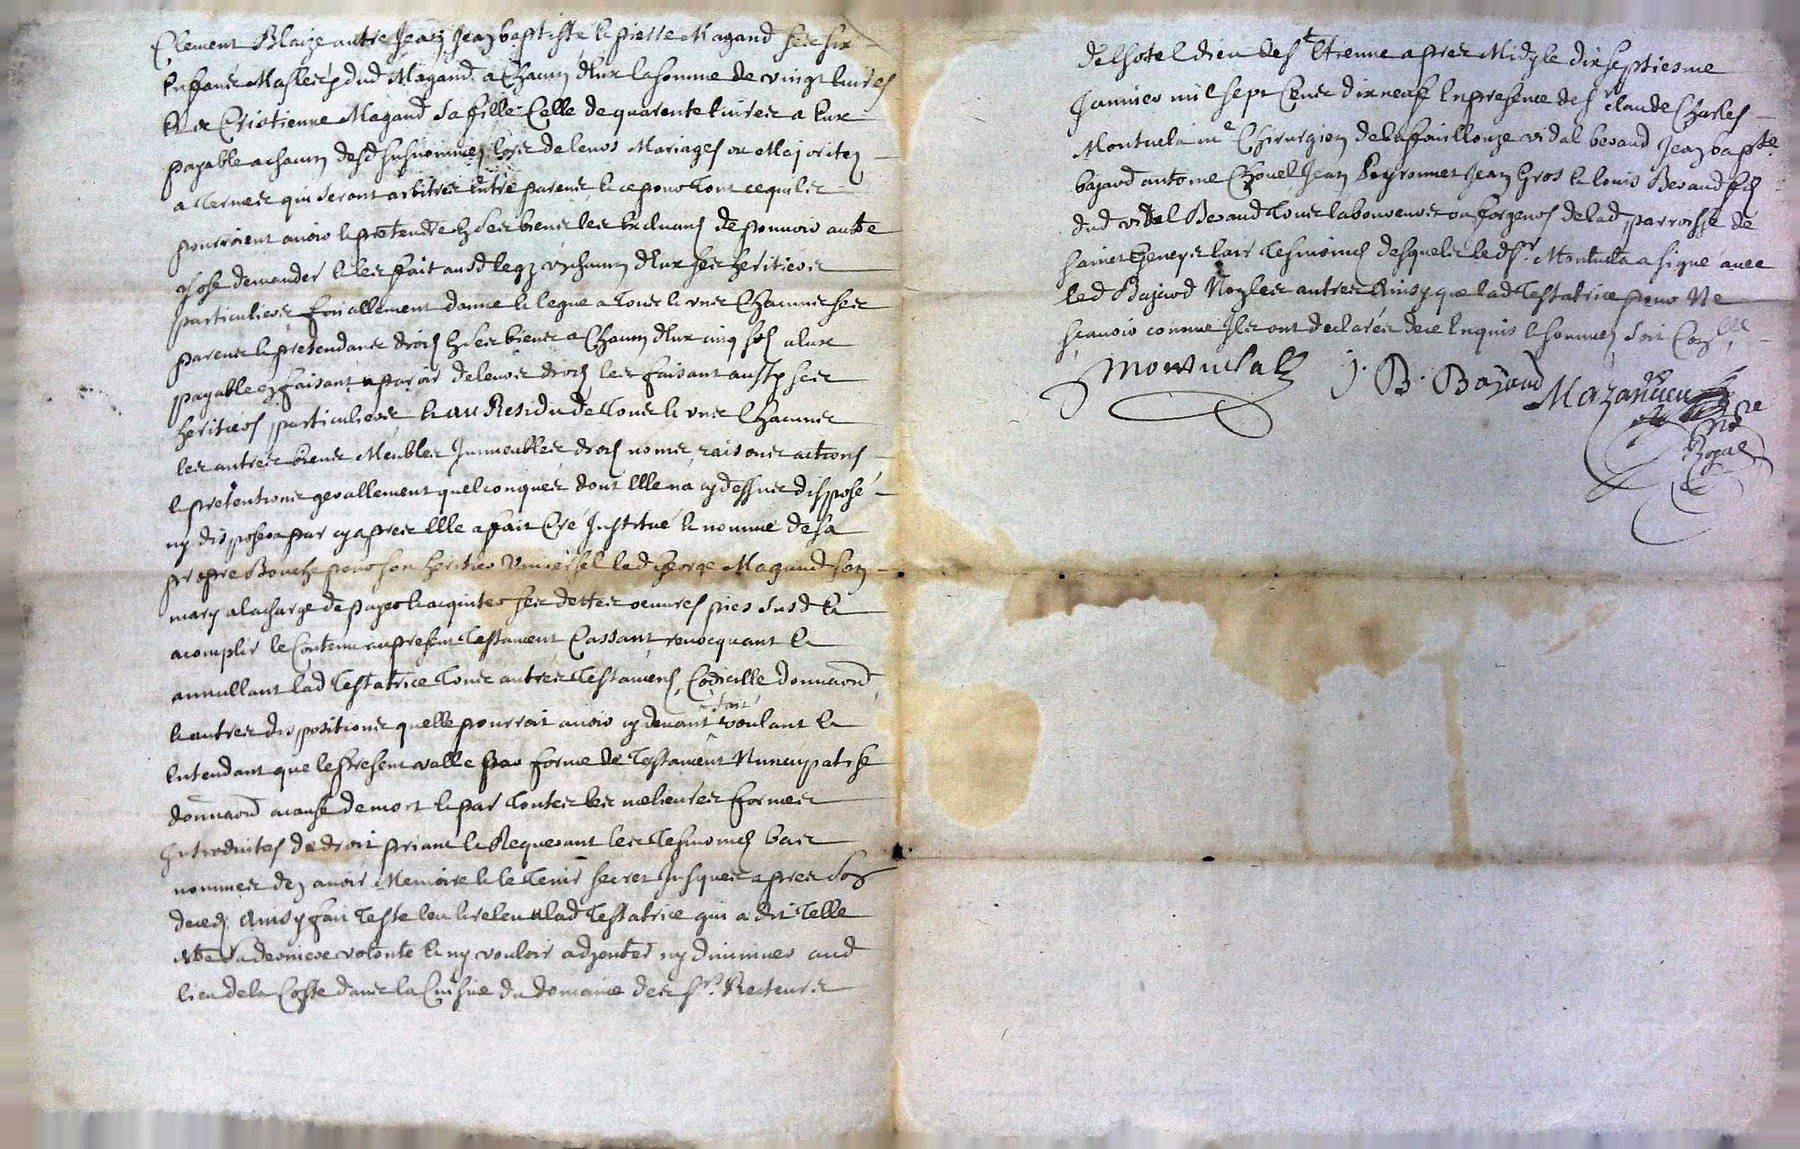 Clement Blaize autre Jean, Jean baptiste & pierre Magand ses six
Enfans Masles dud Magand a chacun d'Eux la somme de vingt livres
Et a Cristienne Magand sa fille Celle de quarente livres a Eux
payable a chacun desd susnommez lors de leurs Mariages ou Majoritez
a Termes qui seront arbitres Entre parens & ce pour tout ce quils
pourroient avoir & pretendre Ez ses biens les Excluans de pouvoir autre
chose demander & les fait aud legz un chacun d'Eux ses heritiers
particuliers, finallement donne & legue a tous & uns Chacuns ses
parens & pretendans droitz Ez ses biens a Chacun d'Eux cinq solz a Eux
payable En faisant aparoir de leurs droitz les faisant aussy ses
heritiers particuliers, & au Residu de Tous & uns Chacuns
les autres biens Meubles Immeubles, droitz noms, raisons actions
& pretentions gerallement quelconques dont Elle na cy dessus disposé
ny disposera par cy apres Elle a fait Cré Institué & nommé de sa
propre Bouche pour son heritier Universel led George Magand son
mary a la charge de payer & acquiter ses dettes oeuvres pies susd &
acomplir le Contenu au present Testament Cassant, revocquant &
annullant lad Testatrice Tous autres Testamens, Codicille donnaon
& autres dispositions quelle pourroit avoir cy devant fait voulant &
Entendant que le present valle par forme de Testament Nuncupatif
donnaon a cause de mort & par Toutes les melieures formes
Introduites de droit priant & Requerant les Tesmoins bas
nommes d'En avoir Memoire & le Tenir secret Jusques apres son
deceds Ainsy fait Teste leu & releu a lad Testatrice qui a dit Telle
Estre sa derniere volonte & ny vouloir adjouter ny diminuer aud
lieu de la Coste dans la Cuisine du domaine des Srs. Recteurs
de lhotel dieu de St Etienne apres Midy le dix septiesme
Janvier mil sept Cens dix neuf En presence de Sr Claude Charles
Montucla me Chirurgien de la fouillouze vidal beraud Jean bapte
bajard antoine Chovel Jean Peyronnet Jean Gros & louis Beraud filz
dud vidal Beraud Tous laboureurs ou forgeurs de lad parroisse de
Sainct Geneys lair Tesmoins desquels led Sr. Montucla a signé avec
led Bajard Non les autres Ainsy que lad Testatrice pour Ne
scavoir comme Ils ont declarés de ce Enquis & sommez soit Conlle
Montuclat J. B. Bajard Mazancieu
Nre
Royal